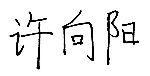 许向阳